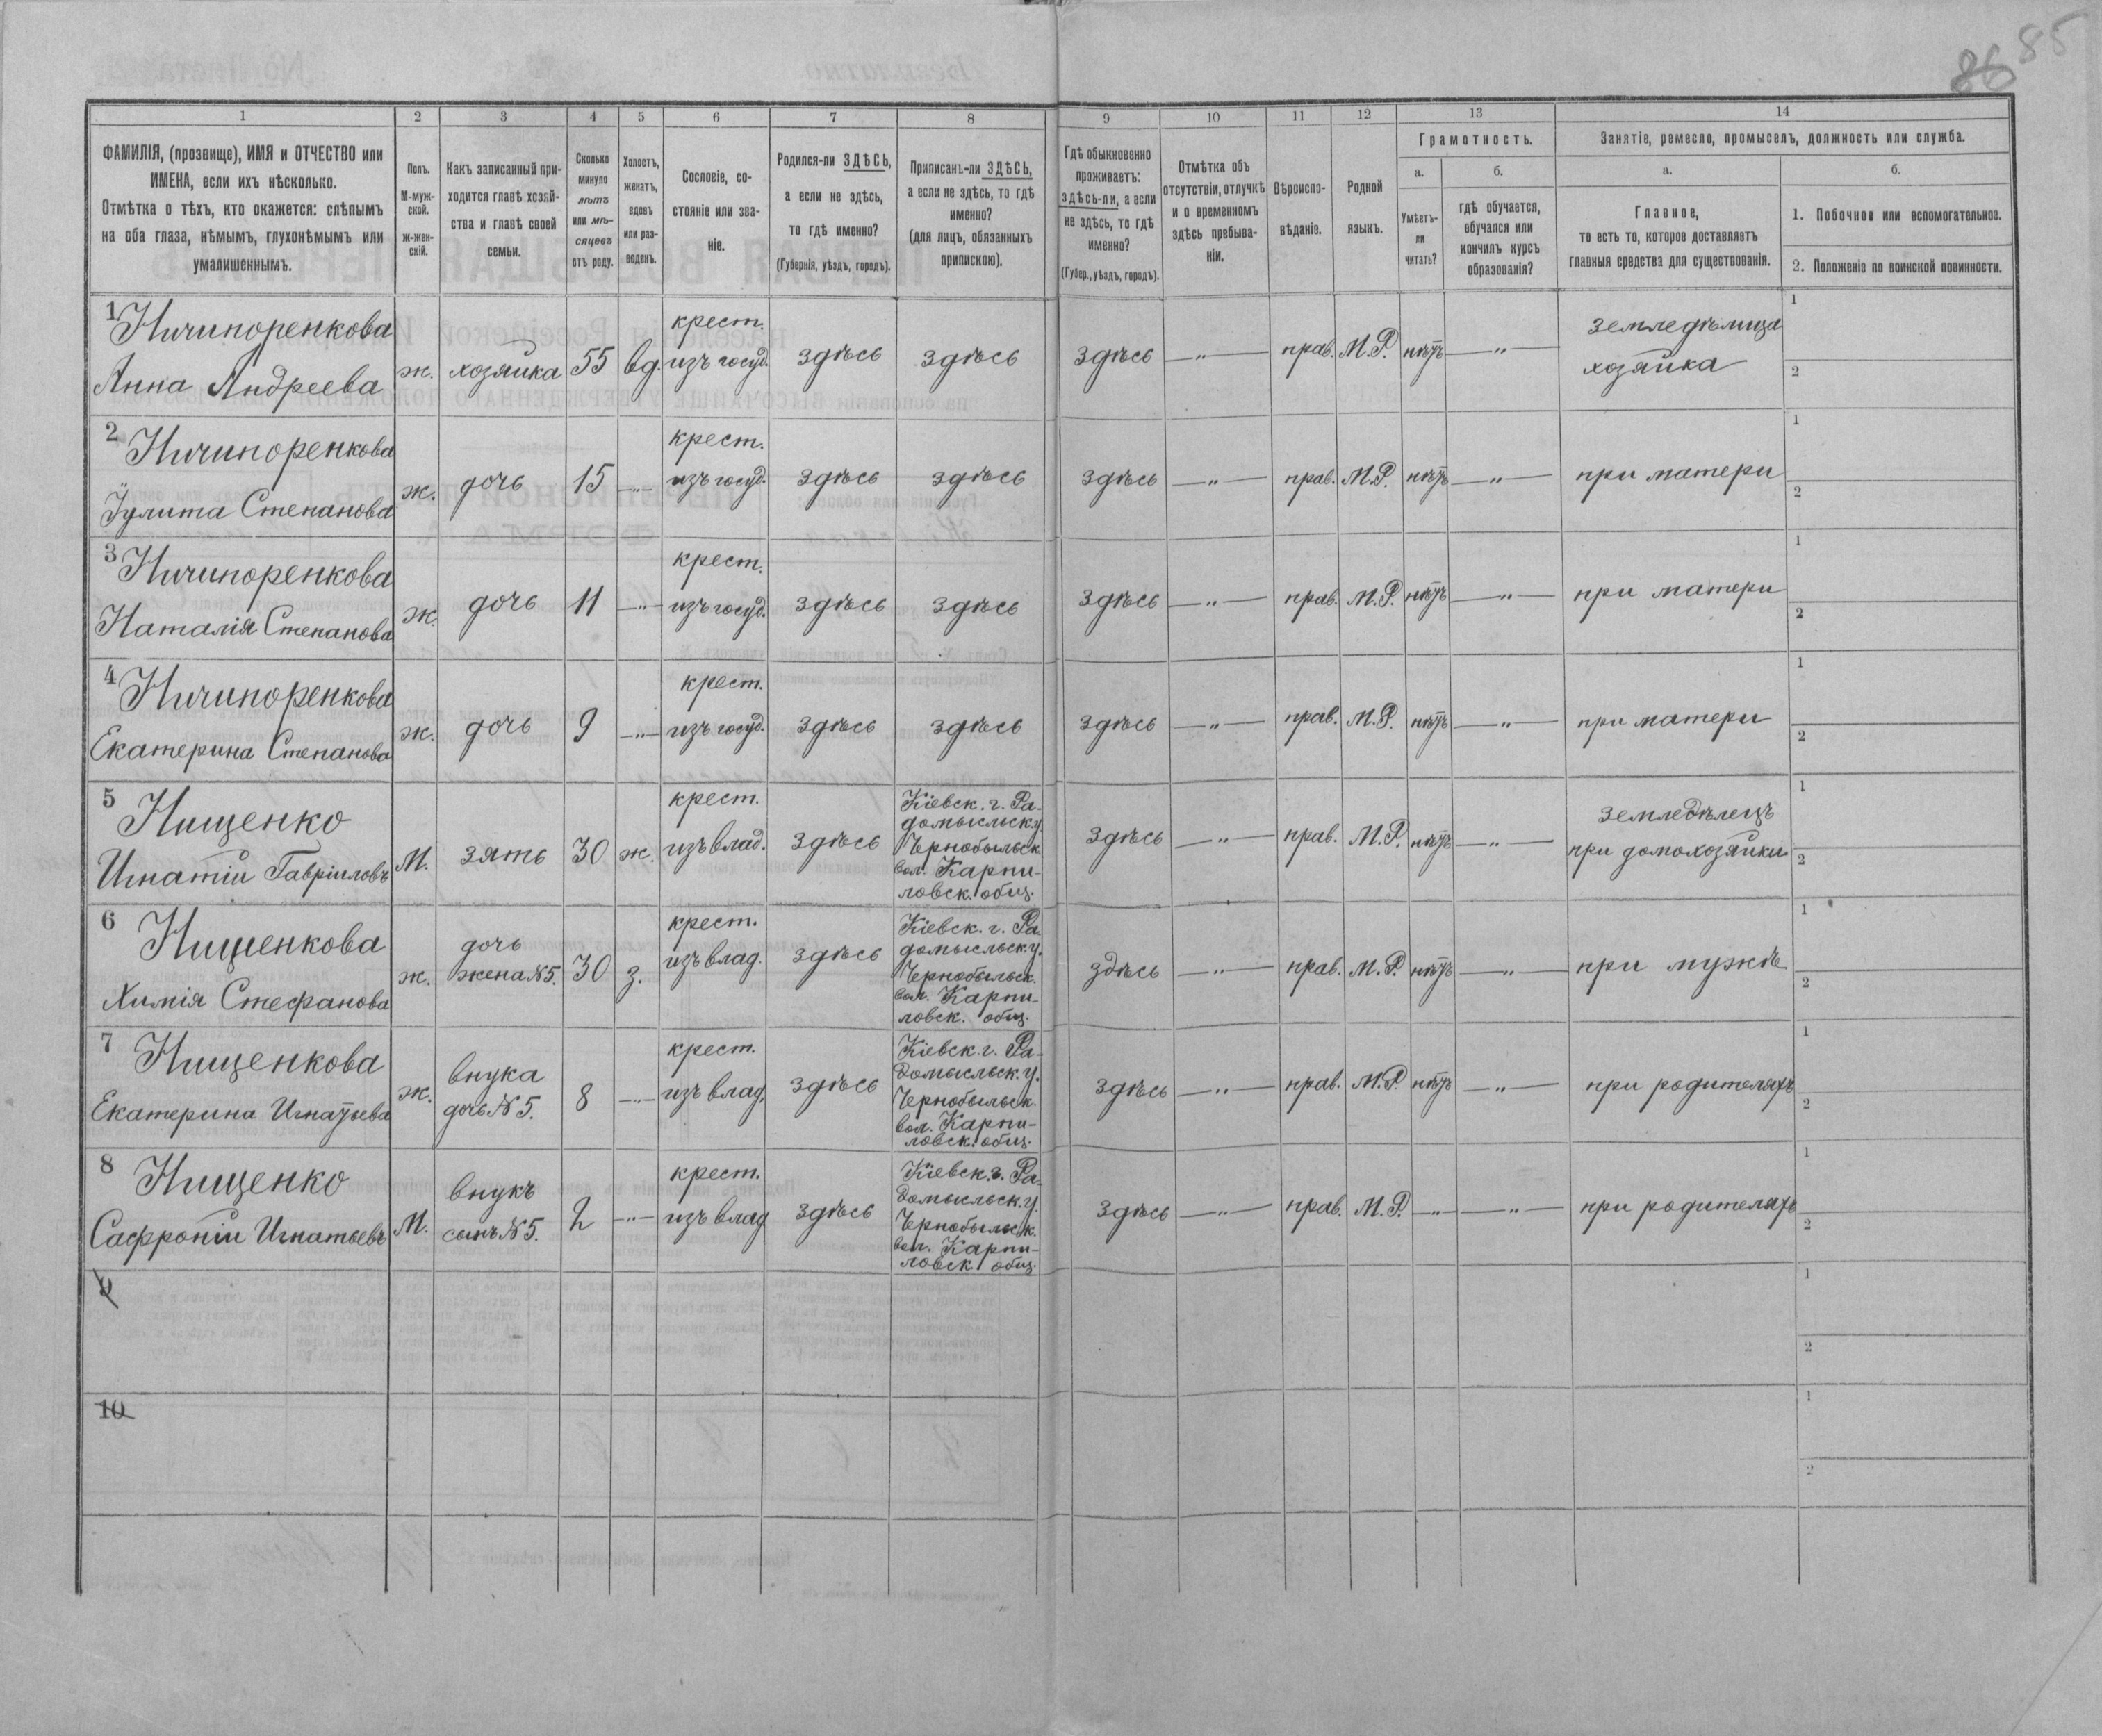 86 85
1 2 3 4 5 6 7 8 9 10 11 12 13 14
ФАМИЛІЯ, (прозвище), ИМЯ и ОТЧЕСТВО или
ИМЕНА, если ихъ нѣсколько.
Отмѣтка о тѣхъ, кто окажется: слѣпымъ
на оба глаза, нѣмымъ, глухонѣмымъ или
умалишеннымъ.
Полъ.
М-муж-
ской.
Ж-жен-
скій.
Какъ записанный при-
ходится главѣ хозяй-
ства и главѣ своей
семьи.
Сколько
минуло
лѣтъ
или мѣ-
сяцевъ
отъ роду.
Холостъ,
женатъ,
вдовъ
или раз-
веденъ.
Сословіе, со-
стояніе или зва-
ніе.
Родился-ли ЗДѢСЬ,
а если не здѣсь,
то гдѣ именно?
(Губернія, уѣздъ, городъ).
Приписанъ-ли ЗДѢСЬ,
а если не здѣсь, то гдѣ
именно?
(для лицъ, обязанныхъ
припискою).
Гдѣ обыкновенно
проживаетъ:
здѣсь-ли, а если
не здѣсь, то гдѣ
именно?
(Губер., уѣздъ, городъ).
Отмѣтка объ
отсутствіи, отлучкѣ
и о временномъ
здѣсь пребыва-
ніи.
Вѣроиспо-
вѣданіе.
Родной
языкъ.
Грамотность.
а.
Умѣетъ-
ли
читать?
б.
гдѣ обучается,
обучался или
кончилъ курсъ
образованія?
Занятіе, ремесло, промыселъ, должность или служба.
а.
Главное,
то есть то, которое доставляетъ
главныя средства для существованія.
б.
1. Побочное или вспомогательное.
2. Положеніе по воинской повинности.
1 Ничипоренкова
Анна Андреева
ж.
хозяйка
55
вд.
крест.
изъ госуд.
здѣсь
здѣсь
здѣсь
— „ —
прав.
М.Р.
нѣтъ
— „ —
земледѣлица
хозяйка
1
2
2 Ничипоренкова
Іулита Степанова
ж.
дочь
15
— „ —
крест.
изъ госуд.
здѣсь
здѣсь
здѣсь
— „ —
прав.
М.Р.
нѣтъ
— „ —
при матери
1
2
3 Ничипоренкова
Наталія Степанова
ж.
дочь
11
— „ —
крест.
изъ госуд.
здѣсь
здѣсь
здѣсь
— „ —
прав.
М.Р.
нѣтъ
— „ —
при матери
1
2
4 Ничипоренкова
Екатерина Степанова
ж.
дочь
9
— „ —
крест.
изъ госуд.
здѣсь
здѣсь
здѣсь
— „ —
прав.
М.Р.
нѣтъ
— „ —
при матери
1
2
5 Нищенко
Игнатій Гавріиловъ
М.
зять
30
ж.
крест.
изъ влад.
здѣсь
Кіевск. г. Ра-
домысльск. у.
Чернобыльск.
вол. Карпи-
ловск. общ.
здѣсь
— „ —
прав.
М.Р.
нѣтъ
— „ —
земледѣлецъ
при домохозяйки
1
2
6 Нищенкова
Химія Стефанова
ж.
дочь
жена №5.
30
з.
крест.
изъ влад.
здѣсь
Кіевск. г. Ра-
домысльск. у.
Чернобыльск.
вол. Карпи-
ловск. общ.
здѣсь
— „ —
прав.
М.Р.
нѣтъ
— „ —
при мужѣ
1
2
7 Нищенкова
Екатерина Игнатьева
ж.
внука
дочь №5.
8
— „ —
крест.
изъ влад.
здѣсь
Кіевск. г. Ра-
домысльск. у.
Чернобыльск.
вол. Карпи-
ловск. общ.
здѣсь
— „ —
прав.
М.Р.
нѣтъ
— „ —
при родителяхъ
1
2
8 Нищенко
Сафроній Игнатьевъ
М.
внукъ
сынъ №5.
2
— „ —
крест.
изъ влад
здѣсь
Кіевск. г. Ра-
домысльск. у.
Чернобыльск.
вол. Карпи-
ловск. общ.
здѣсь
— „ —
прав.
М.Р.
— „ —
— „ —
при родителяхъ
1
2
9
1
2
10
1
2